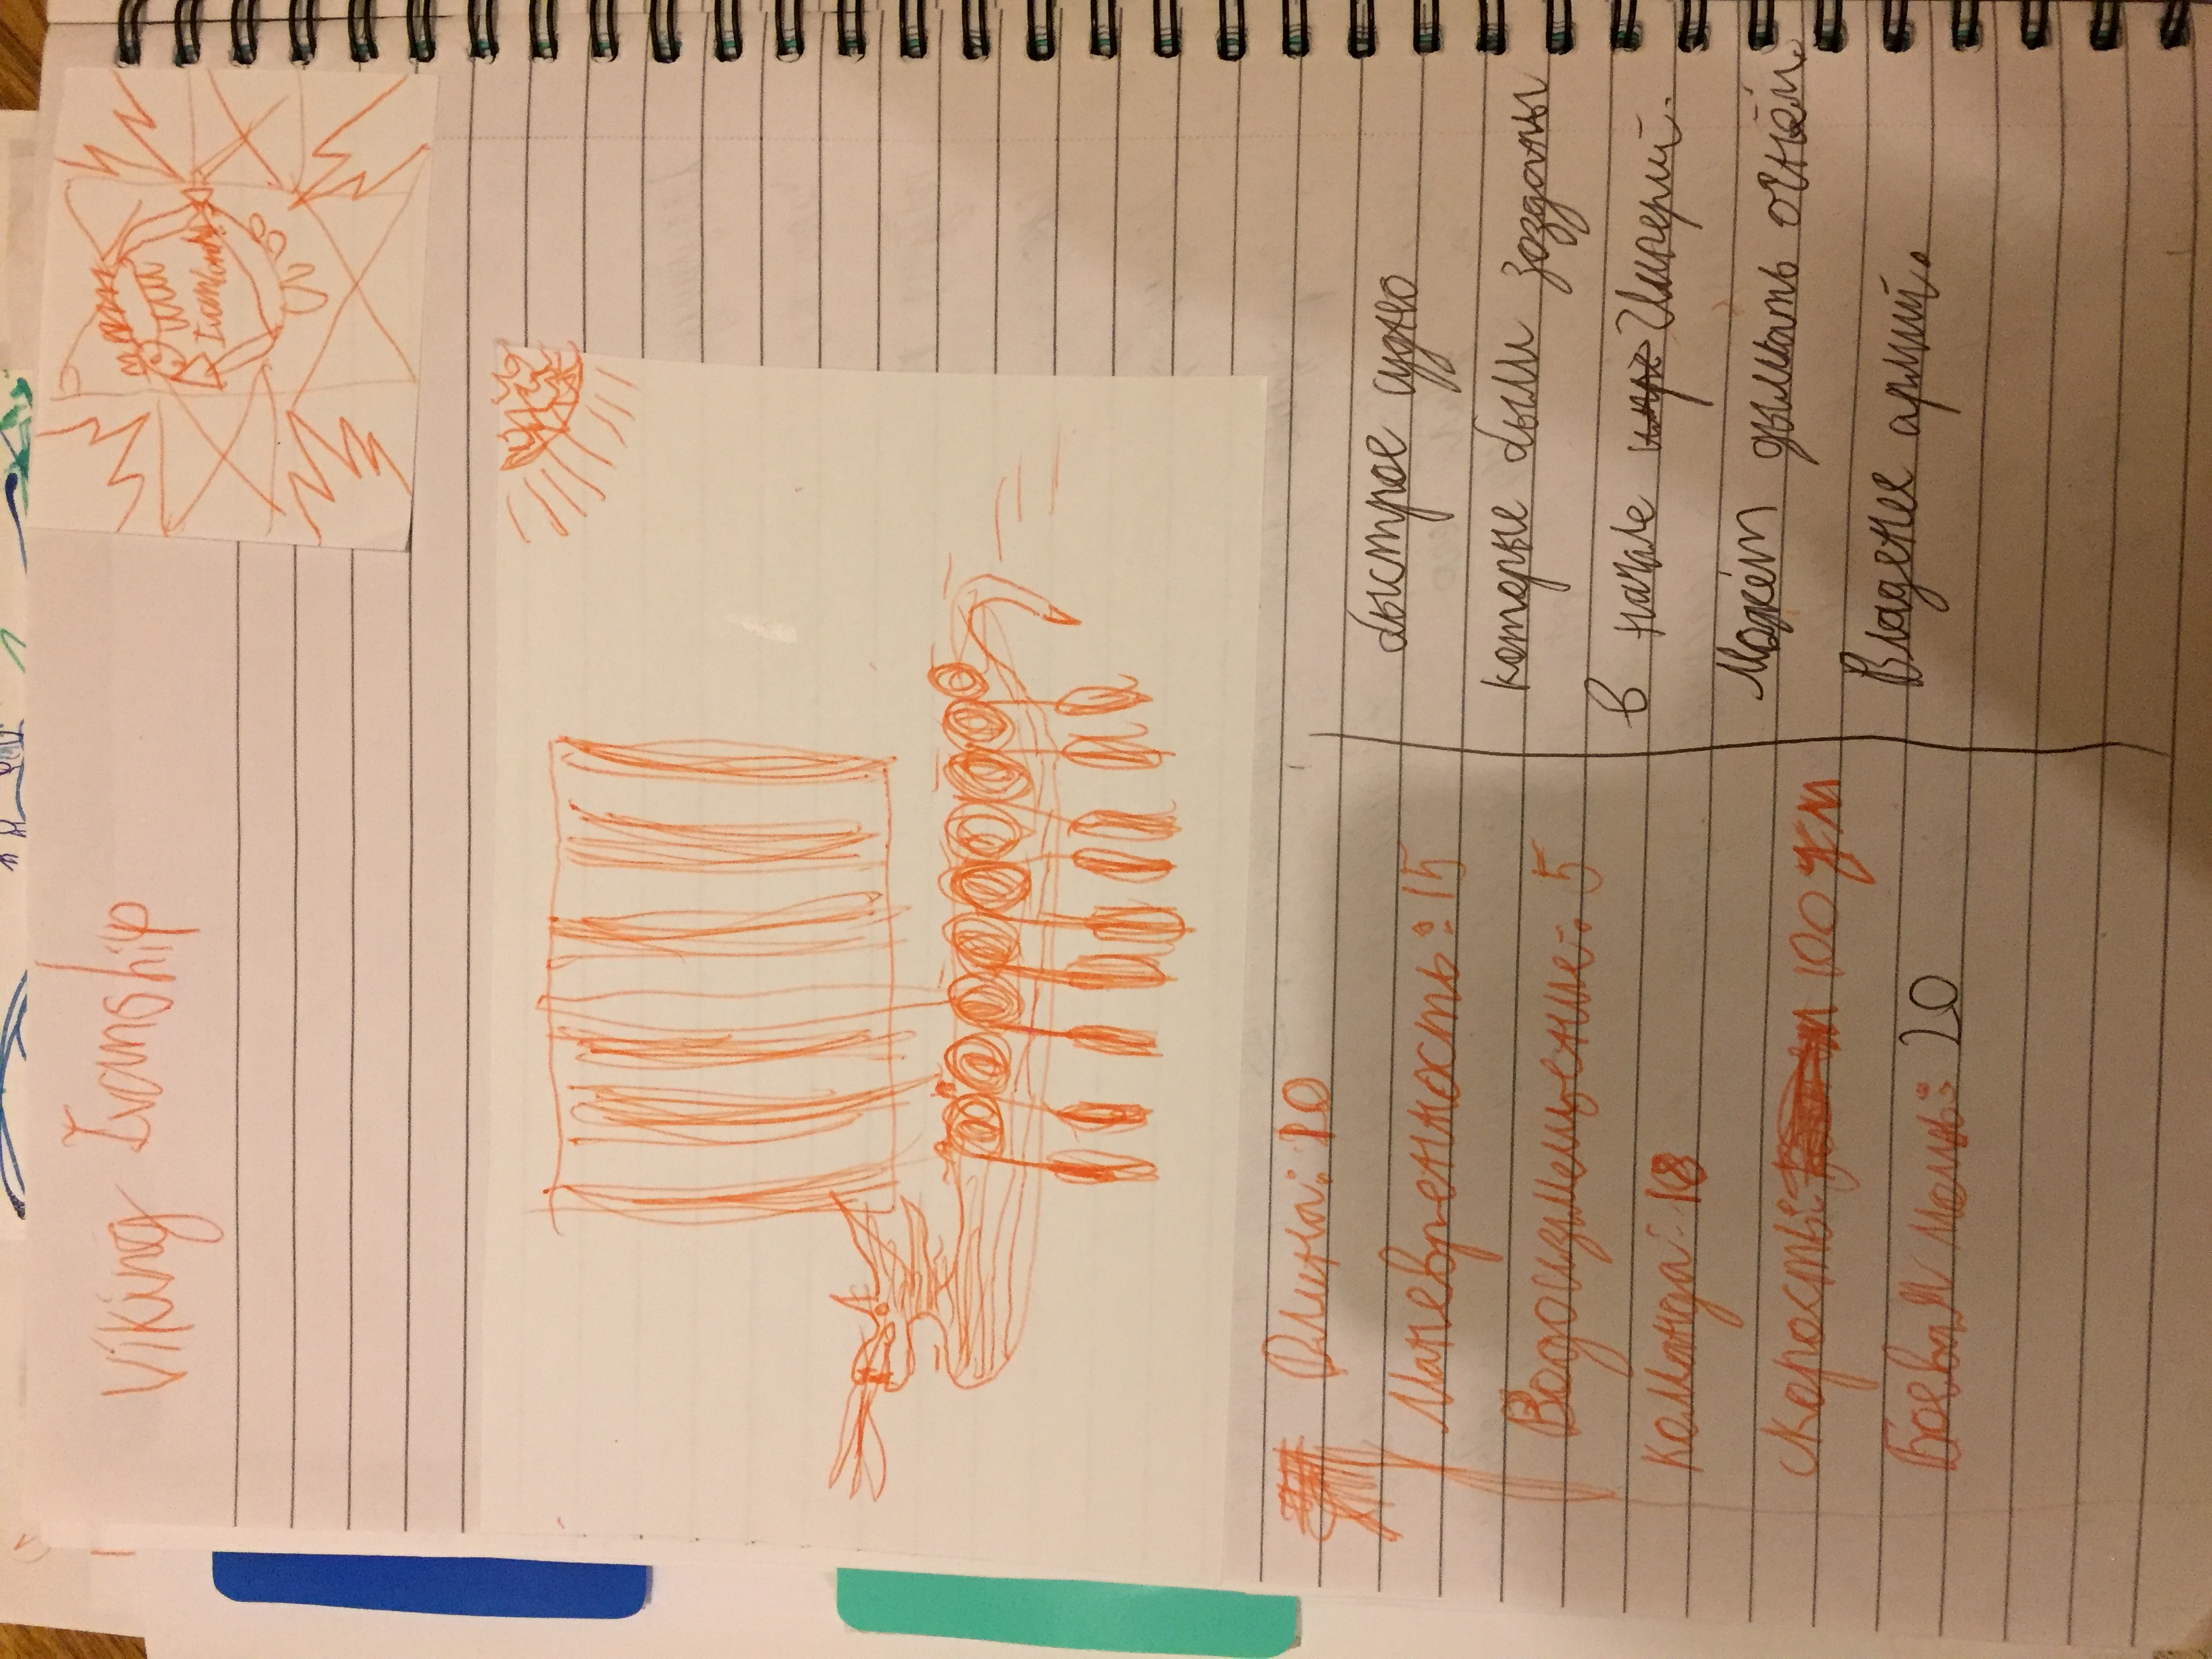 Viking Ivanship
Длина: 10
Маневренность: 15
Водоизмещение: 5
Команда: 18
Скорость: 100 ум
Боевая мощь: 20
быстрое судно
которые были зозданы
в начале Империй.
Можёт дымить огнём.
Владене армий.